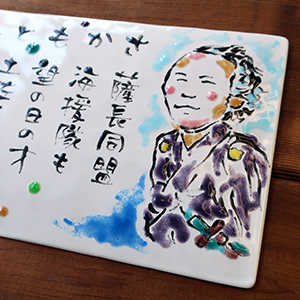 さかもと
薩長同盟
海援隊も
望の日の才